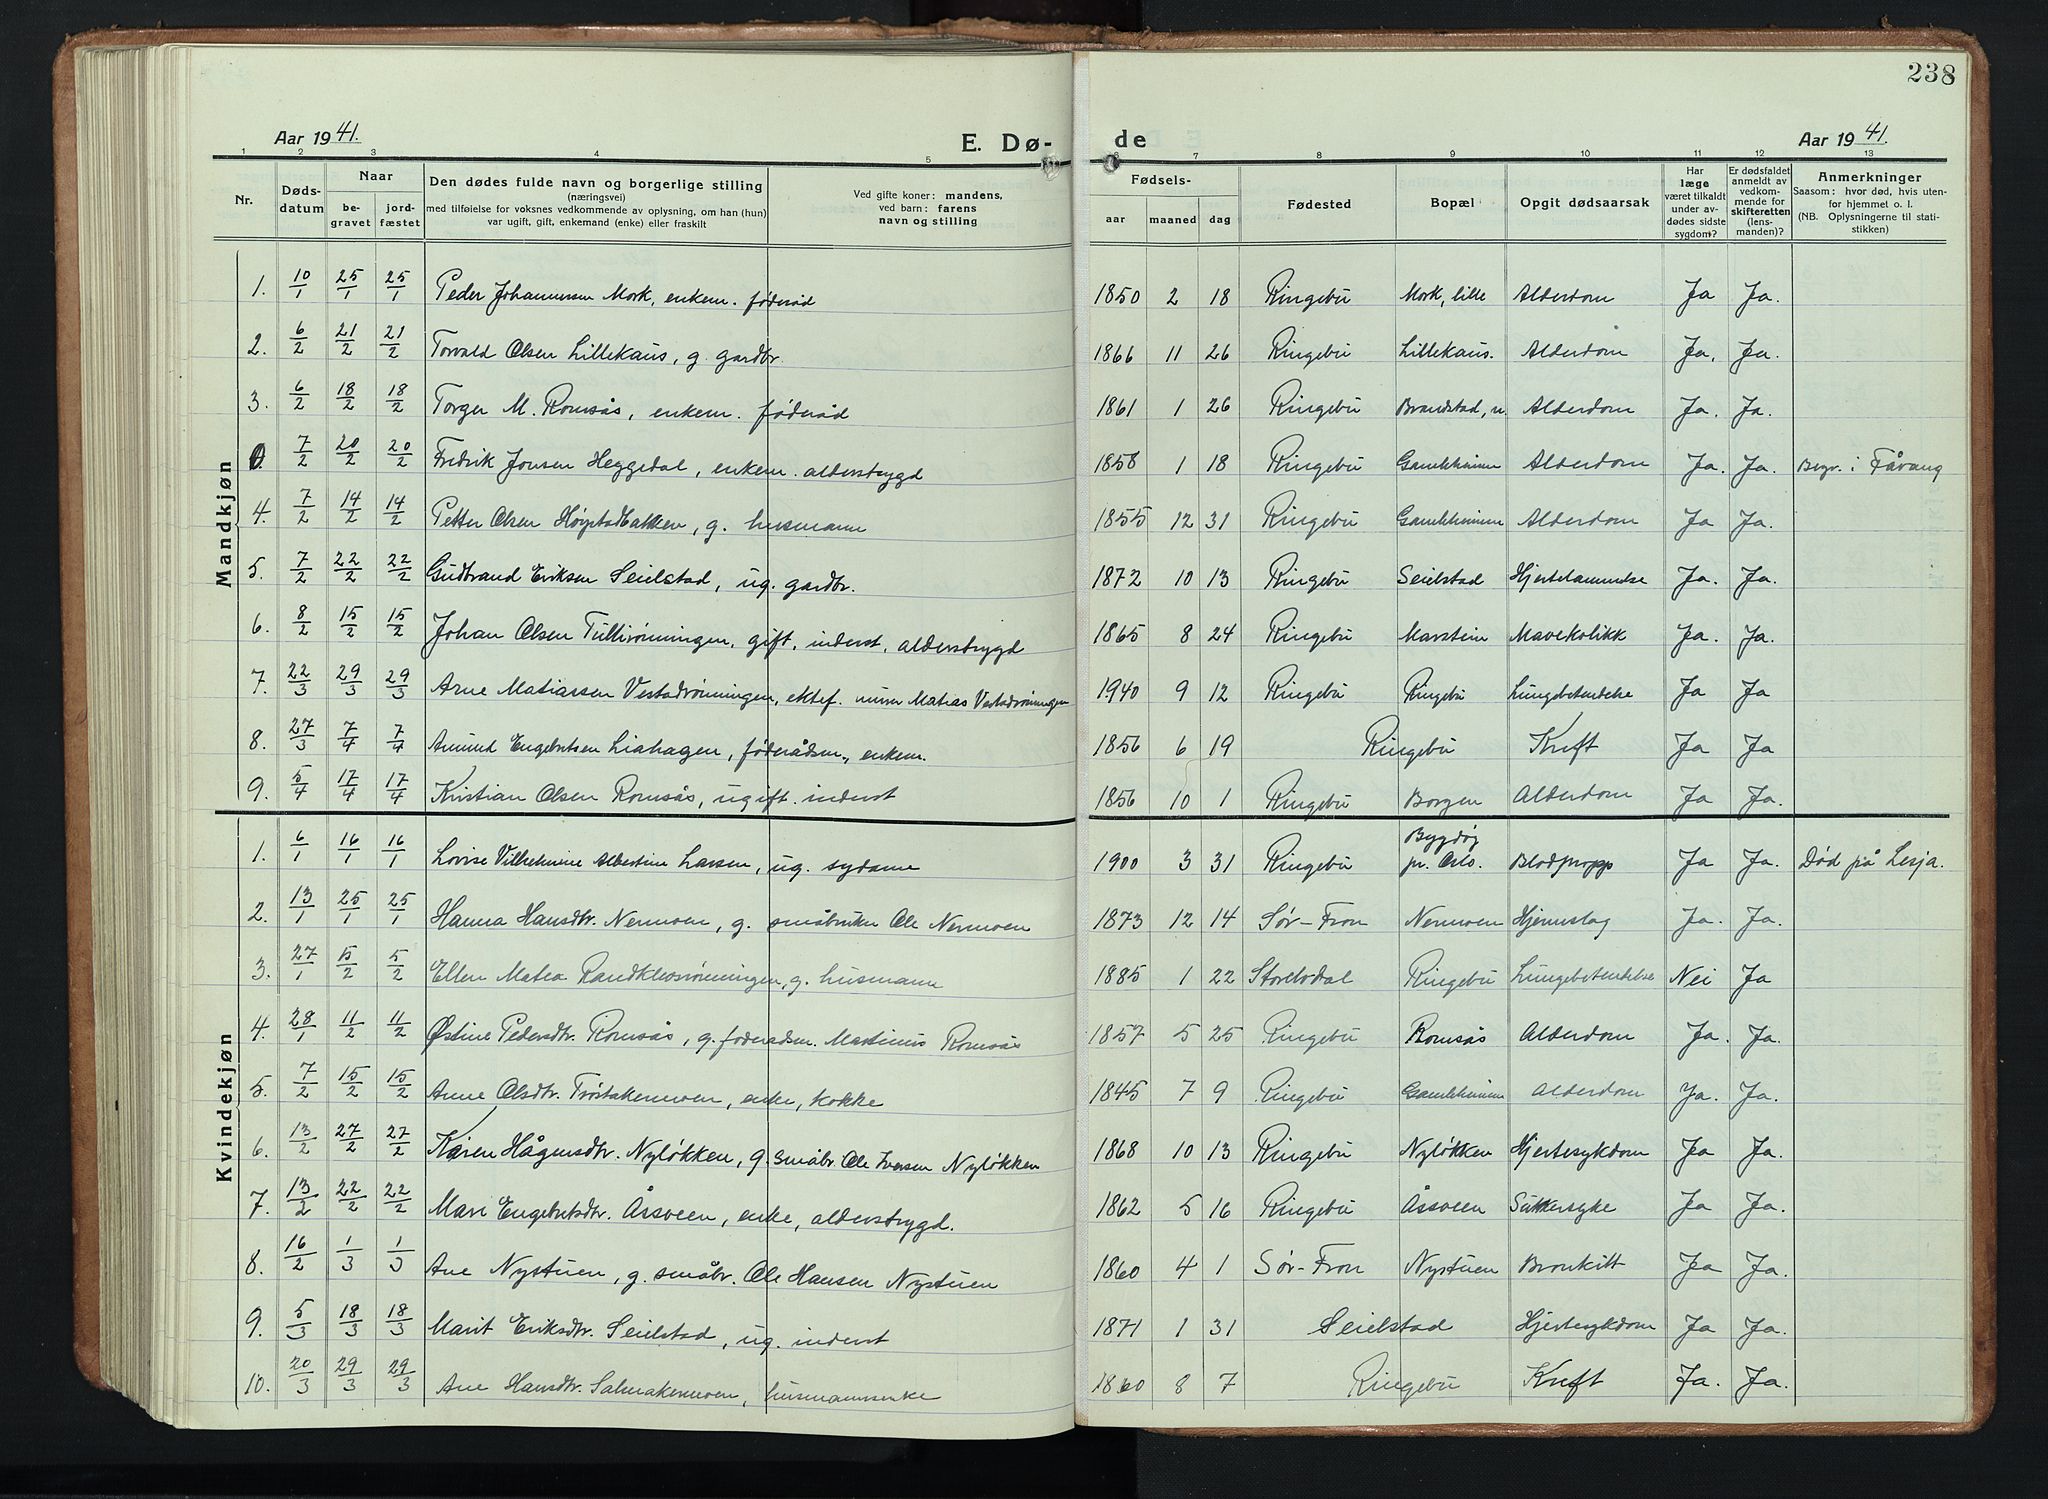 238
Aar 1941.
E. Dø-
de
Aar 1941.
1 2 3 4 5 6 7 8 9 10 11 12 13
Nr.
Døds-
datum
Naar
be-
gravet
jord-
fæstet
Den dødes fulde navn og borgerlige stilling
(næringsvei)
med tilføielse for voksnes vedkommende av oplysning, om han (hun)
var ugift, gift, enkemand (enke) eller fraskilt
Ved gifte koner: mandens,
ved barn: farens
navn og stilling
Fødsels-
aar
maaned
dag
Fødested
Bopæl
Opgit dødsaarsak
Har
læge
været tilkaldt
under av-
dødes sidste
sygdom?
Er dødsfaldet
anmeldt av
vedkom-
mende for
skifteretten
(lens-
manden)?
Anmerkninger
Saasom: hvor død, hvis uten-
for hjemmet o. l.
(NB. Oplysningerne til stati-
stikken)
Mandkjøn
1. 10/1 25/1 25/1 Peder Johannessen Mork, enkem. føderåd 1850 2 18 Ringebu Mork, lille Alderdom Ja Ja.
2. 6/2 21/2 21/2 Torvald Olsen Lillekaus, g. gardbr. 1866 11 26 Ringebu Lillekaus. Alderdom Ja. Ja.
3. 6/2 18/2 18/2 Torger M. Romsås, enkem. føderåd 1861 1 26 Ringebu Brandstad, n. Alderdom Ja. Ja.
0. 7/2 20/2 20/2 Fredrik Jonsen Heggedal, enkem. alderstrygd 1858 1 18 Ringebu Gamleheimen Alderdom Ja. Ja. Begr. i Fåvang
4. 7/2 14/2 14/2 Petter Olsen Høystadbakken, g. husmann 1855 12 31 Ringebu Gamleheimen Alderdom Ja Ja.
5. 7/2 22/2 22/2 Gudbrand Eriksen Seielstad, ug. gardbr. 1872 10 13 Ringebu Seielstad Hjertelammelse Ja. Ja.
6. 8/2 15/2 15/2 Johan Olsen Tullirønningen, gift, inderst, alderstrygd 1865 8 24 Ringebu Marstein Mavekolikk Ja. Ja.
7. 22/3 29/3 29/3 Arne Matiassen Vestadrønningen, ektef. murer Matias Vestadrønningen 1940 9 12 Ringebu Ringebu Lungebetendelse Ja Ja
8. 27/3 7/4 7/4 Amund Engebretsen Liahagen, føderådsm., enkem. 1856 6 19 Ringebu Kreft Ja Ja
9. 5/4 17/4 17/4 Kristian Olsen Romsås, ugift. inderst 1856 10 1 Ringebu Borgen Alderdom Ja Ja.
Kvindekjøn
1. 6/1 16/1 16/1 Lovise Vilhelmine Albertine Larsen, ug. sydame 1900 3 31 Ringebu Bygdøy pr. Oslo. Blodpropp Ja Ja. Død på Lesja.
2. 13/1 25/1 25/1 Hanna Hansdtr. Nermoen, g. småbruker Ole Nermoen 1873 12 14 Sør-Fron Nermoen Hjerneslag Ja. Ja.
3. 27/1 5/2 5/2 Ellen Matea Randklevsrønningen, g. husmann 1885 1 22 Storelvdal Ringebu Lungebetendelse Nei Ja
4. 28/1 11/2 11/2 Østine Pedersdtr. Romsås, g. føderådsm. Martinius Romsås 1857 5 25 Ringebu Romsås Alderdom Ja. Ja.
5. 7/2 15/2 15/2 Anne Olsdtr. Trøstakermoen, enke, kokke 1845 7 9 Ringebu Gamleheimen Alderdom Ja. Ja.
6. 13/2 27/2 27/2 Karen Hågensdtr. Nyløkken, g. småbr. Ole Iversen Nyløkken 1868 10 13 Ringebu Nyløkken Hjertesykdom Ja Ja.
7. 13/2 22/2 22/2 Mari Engebretsdtr. Åssveen, enke, alderstrygd. 1862 5 16 Ringebu Åssveen Sukkersyke Ja Ja.
8. 16/2 1/3 1/3 Ane Nystuen, g. småbr. Ole Hansen Nystuen 1860 4 1 Sør-Fron Nystuen Bronkitt Ja Ja.
9. 5/3 18/3 18/3 Marit Eriksdtr. Seielstad, ug. inderst 1871 1 31 Seielstad Hjertesykdom Ja Ja.
10. 20/3 29/3 29/3 Ane Hansdtr. Salmakermoen, husmannsenke 1860 8 7 Ringebu Kreft Ja. Ja.